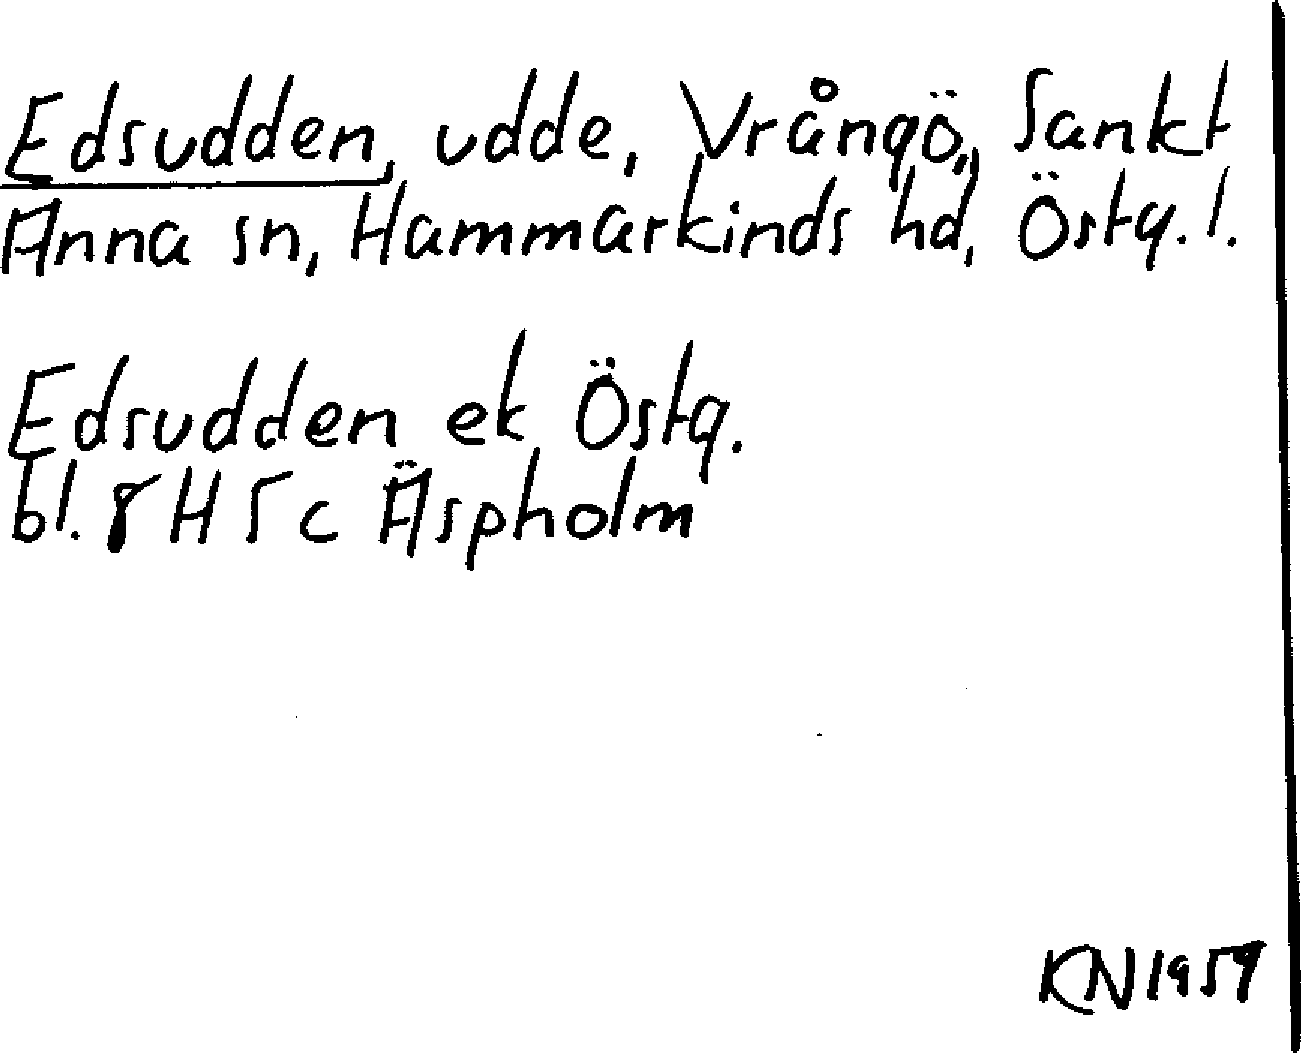 Edsudden, udde, Vrångö, Sankt
Anna sn, Hammarkinds hd, Östg.l.
Edsudden ek Östg.
bl. 8 H 5 c Äspholm
KN 1959